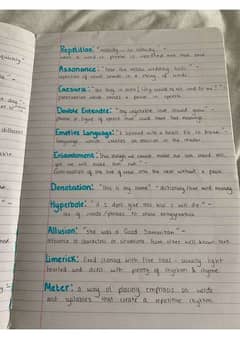 Repetition: "nobody - no nobody" -
word or phrase is repeated more than once
Assonance: "hear the mellow wedding bells" -
repetition of vowel sounds in a string of words
Caesura: "
punctuation which causes a pause in speech
Double Entendre: "My vegetable love should grow" -
phrase or figure of speech that could have two meanings
Emotive Language:
language which creates an emotion in the reader
Enjambment: "Thus, though we cannot make our sun stand still, yet
we will make him run" -
Continuation of one line of verse into the next without a pause
Denotation: "this is my home" - dictionary term and meaning
Hyperbole: "if I don't give this kiss I will die" -
use of words/phrases to show exaggeration
Allusion: "she was a Good Samaritan" -
reference to characters or situations from other well-known text
Limerick: fixed stanza with five lines - usually light
hearted and with plenty of rhythm & rhyme
Meter: a way of placing emphasis on words
and syllables that create a repetitive rhythm